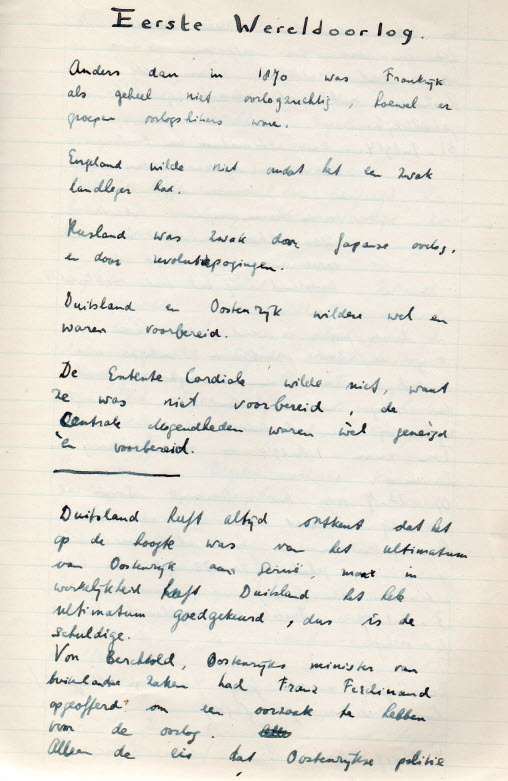 Eerste Wereldoorlog.
Anders dan in 1870 was Frankrijk
als geheel niet oorlogzuchtig, hoewel er
groepen oorlogshitsers waren.
Engeland wilde niet omdat het een zwak
landleger had.
Rusland was zwak door Japanse oorlog,
en door revolutiepogingen.
Duitsland en Oostenrijk wilden wel en
waren voorbereid.
De Entente Cordiale wilde niet, want
ze was niet voorbereid, de
Centrale Mogendheden waren wèl geneigd
èn voorbereid.
Duitsland heeft altijd ontkent dat het
op de hoogte was van het ultimatum
van Oostenrijk aan Servië, maar in
werkelijkheid heeft Duitsland het hele
ultimatum goedgekeurd, dus is de
schuldige.
Von Berchtold, Oostenrijks minister van
buitenlandse zaken had Franz Ferdinand
opgeofferd om een oorzaak te hebben
voor de oorlog.
Alleen de eis dat Oostenrijkse politie